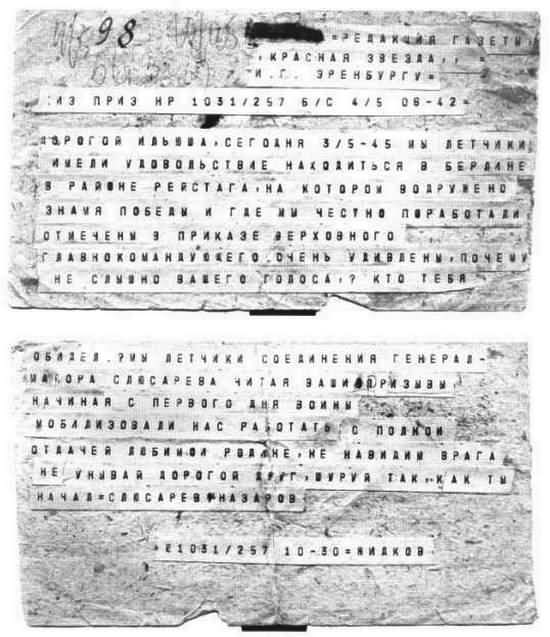 98
=РЕДАКЦИЯ ГАЗЕТЫ,
,КРАСНАЯ ЗВЕЗДА,, =
И.Г. ЭРЕНБУРГУ=
ИЗ ПРИЭ НР 1031/257 Б/С 4/5 06-42=
ДОРОГОЙ ИЛЬЮША,СЕГОДНЯ 3/5-45 МЫ ЛЕТЧИКИ
ИМЕЛИ УДОВОЛЬСТВИЕ НАХОДИТЬСЯ В БЕРЛИНЕ
В РАЙОНЕ РЕЙСТАГА,НА КОТОРОМ ВОДРУЖЕНО
ЗНАМЯ ПОБЕДЫ И ГДЕ МЫ ЧЕСТНО ПОРАБОТАЛИ
ОТМЕЧЕНЫ В ПРИКАЗЕ ВЕРХОВНОГО
ГЛАВНОКОМАНДУЮЩЕГО.ОЧЕНЬ УДИВЛЕНЫ,ПОЧЕМУ
НЕ СЛЫШНО ВАШЕГО ГОЛОСА,? КТО ТЕБЯ
ОБИДЕЛ.?МЫ ЛЕТЧИКИ СОЕДИНЕНИЯ ГЕНЕРАЛ-
МАЙОРА СЛЮСАРЕВА ЧИТАЯ ВАШИ ПРИЗЫВЫ
НАЧИНАЯ С ПЕРВОГО ДНЯ ВОЙНЫ
МОБИЛИЗОВАЛИ НАС РАБОТАТЬ С ПОЛНОЙ
ОТДАЧЕЙ ЛЮБИМОЙ РОДИНЕ,НЕ НАВИДИМ ВРАГА
НЕ УНЫВАЙ ДОРОГОЙ ДРУГ,ШУРУЙ ТАК,КАК ТЫ
НАЧАЛ=СЛЮСАРЕВ НАЗАРОВ
1031/257 10-30=ЖИДКОВ